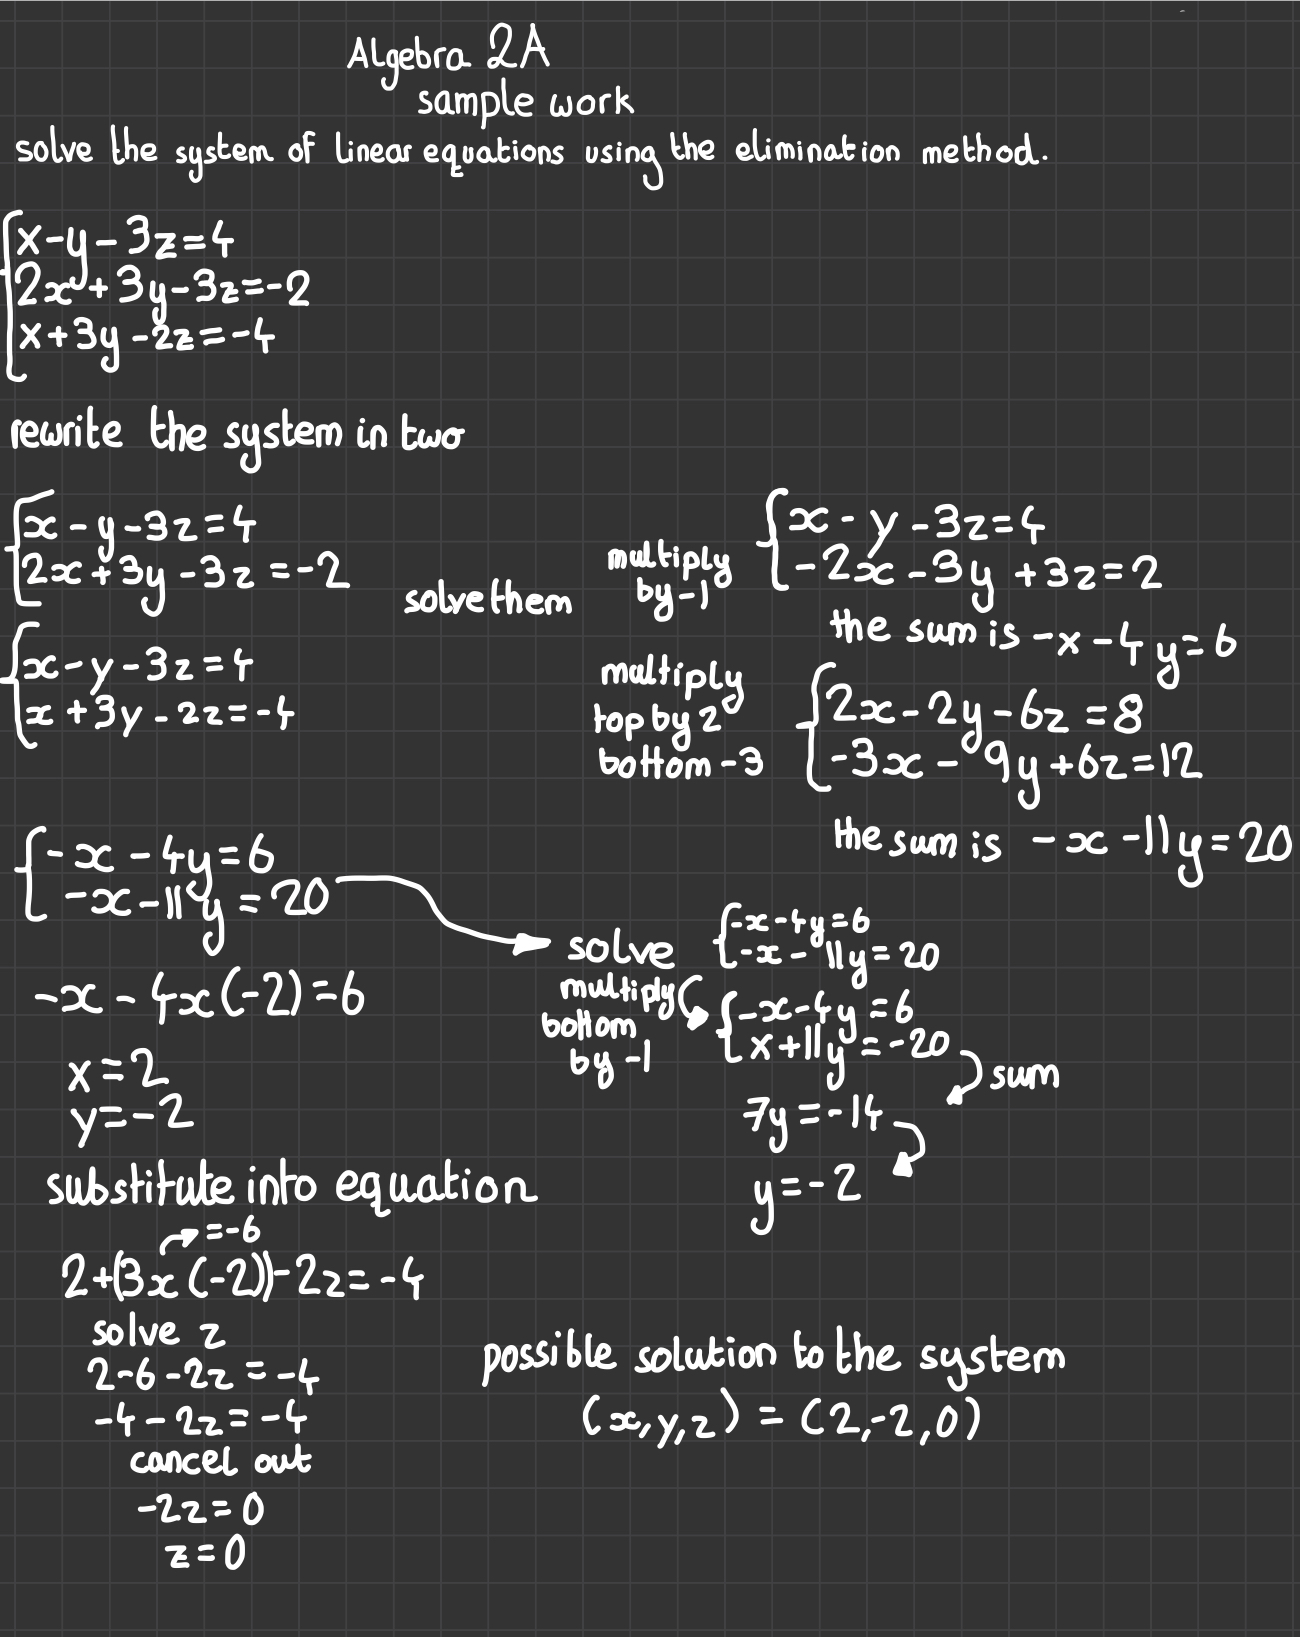 Algebra 2A
sample work
solve the system of linear equations using the elimination method.
x-y-3z=4
2x+3y-3z=-2
x+3y-2z=-4
rewrite the system in two
x-y-3z=4
2x+3y-3z=-2
x-y-3z=4
x+3y-2z=-4
solve them
multiply
by -1
x-y-3z=4
-2x-3y+3z=2
the sum is -x-4y=6
multiply
top by 2
bottom -3
2x-2y-6z=8
-3x-9y+6z=12
the sum is -x-11y=20
-x-4y=6
-x-11y=20
solve
-x-4y=6
-x-11y=20
multiply
bottom
by -1
-x-4y=6
x+11y=-20
sum
7y=-14
y=-2
-x-4x(-2)=6
x=2
y=-2
substitute into equation
=-6
2+(3x(-2))-2z=-4
solve z
2-6-2z=-4
-4-2z=-4
cancel out
-2z=0
z=0
possible solution to the system
(x,y,z)=(2,-2,0)